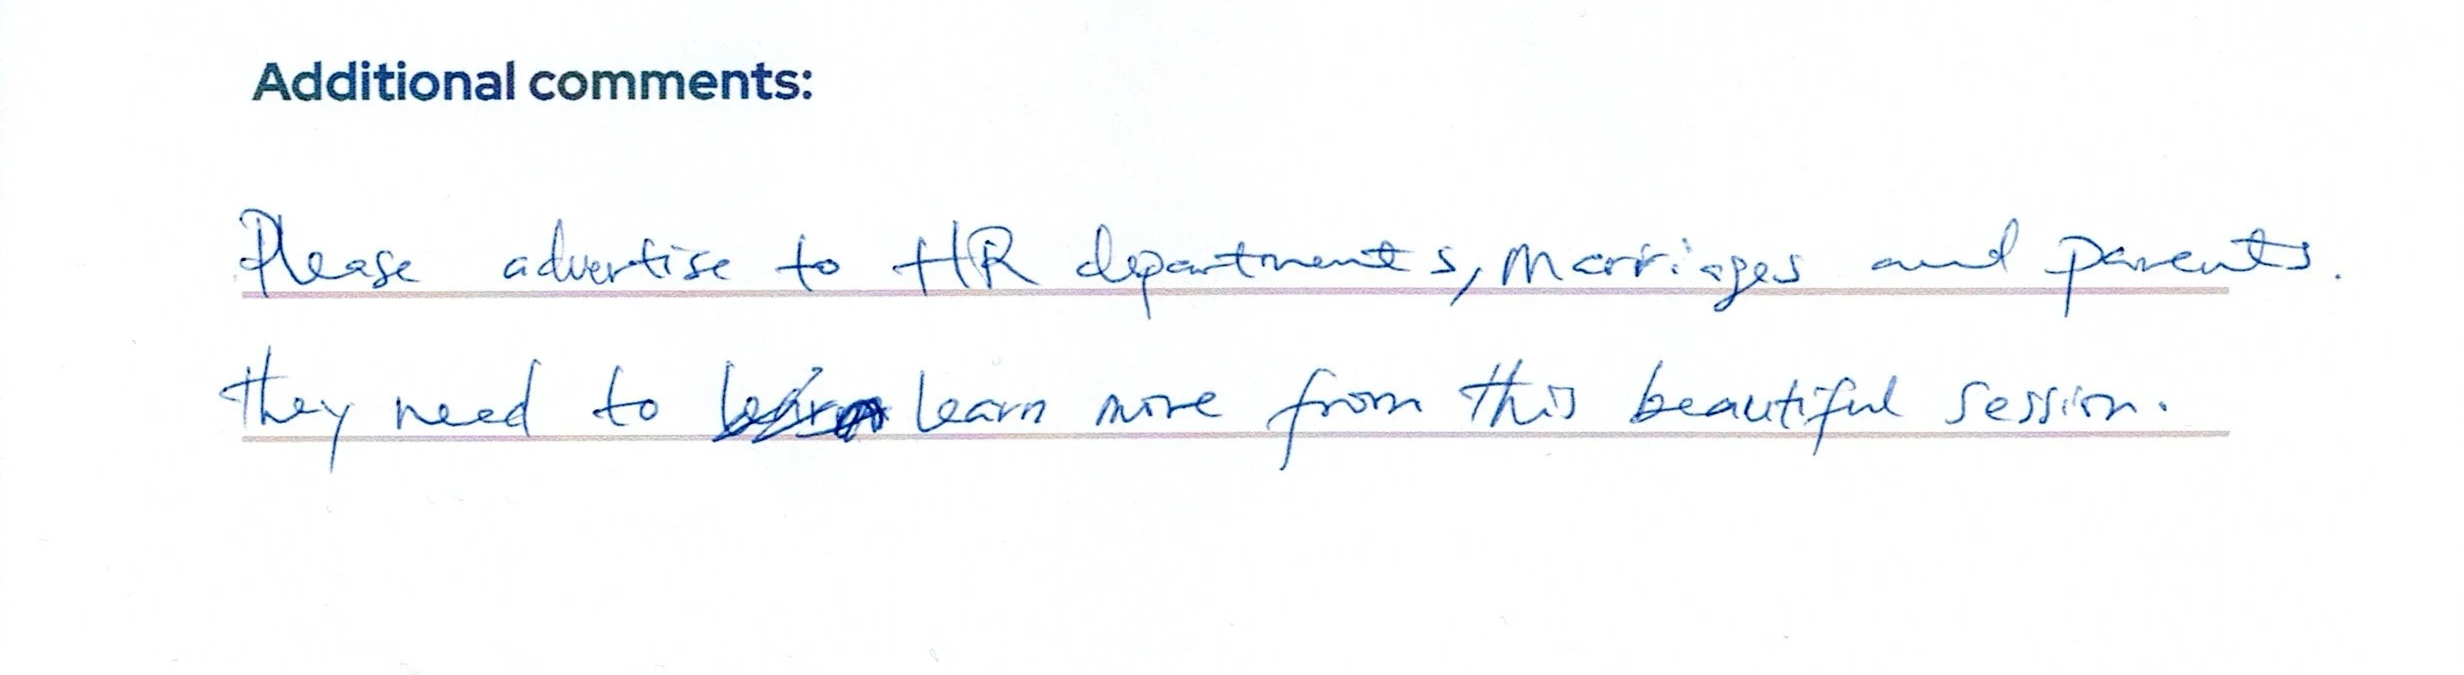 Additional comments:
Please advertise to HR departments, Marriages and parents.
they need to learn more from this beautiful session.